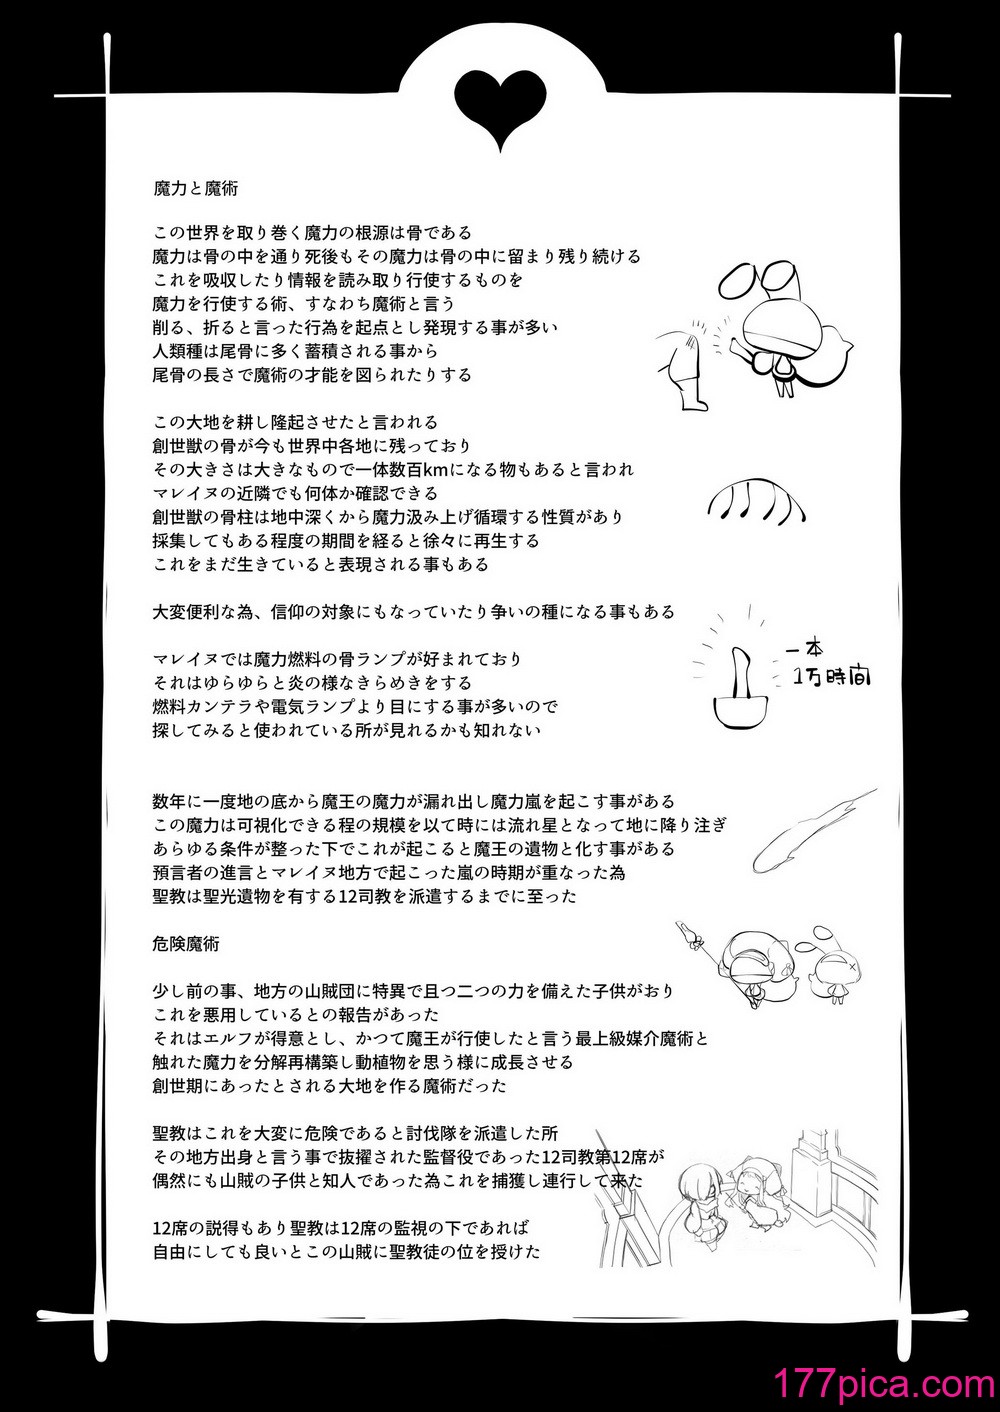 魔力と魔術
この世界を取り巻く魔力の根源は骨である
魔力は骨の中を通り死後もその魔力は骨の中に留まり残り続ける
これを吸収したり情報を読み取り行使するものを
魔力を行使する術、すなわち魔術と言う
削る、折ると言った行為を起点とし発現する事が多い
人類種は尾骨に多く蓄積される事から
尾骨の長さで魔術の才能を図られたりする
この大地を耕し隆起させたと言われる
創世獣の骨が今も世界中各地に残っており
その大きさは大きなもので一体数百kmになる物もあると言われ
マレイヌの近隣でも何体か確認できる
創世獣の骨柱は地中深くから魔力汲み上げ循環する性質があり
採集してもある程度の期間を経ると徐々に再生する
これをまだ生きていると表現される事もある
大変便利な為、信仰の対象にもなっていたり争いの種になる事もある
マレイヌでは魔力燃料の骨ランプが好まれており
それはゆらゆらと炎の様なきらめきをする
燃料カンテラや電気ランプより目にする事が多いので
探してみると使われている所が見れるかも知れない
一本
1万時間
数年に一度地の底から魔王の魔力が漏れ出し魔力嵐を起こす事がある
この魔力は可視化できる程の規模を以て時には流れ星となって地に降り注ぎ
あらゆる条件が整った下でこれが起こると魔王の遺物と化す事がある
預言者の進言とマレイヌ地方で起こった嵐の時期が重なった為
聖教は聖光遺物を有する12司教を派遣するまでに至った
危険魔術
少し前の事、地方の山賊団に特異で且つ二つの力を備えた子供がおり
これを悪用しているとの報告があった
それはエルフが得意とし、かつて魔王が行使したと言う最上級媒介魔術と
触れた魔力を分解再構築し動植物を思う様に成長させる
創世期にあったとされる大地を作る魔術だった
聖教はこれを大変に危険であると討伐隊を派遣した所
その地方出身と言う事で抜擢された監督役であった12司教第12席が
偶然にも山賊の子供と知人であった為これを捕獲し連行して来た
12席の説得もあり聖教は12席の監視の下であれば
自由にしても良いとこの山賊に聖教徒の位を授けた
177pica.com